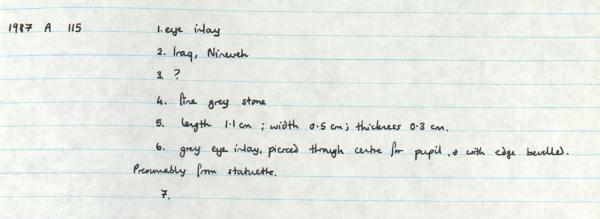 1987 A 115 1. eye inlay
2. Iraq, Nineveh
3. ?
4. fine grey stone
5. length 1.1 cm ; width 0.5 cm ; thickness 0.3 cm.
6. grey eye inlay, pierced through centre for pupil, & with edge bevelled.
Presumably from statuette.
7.